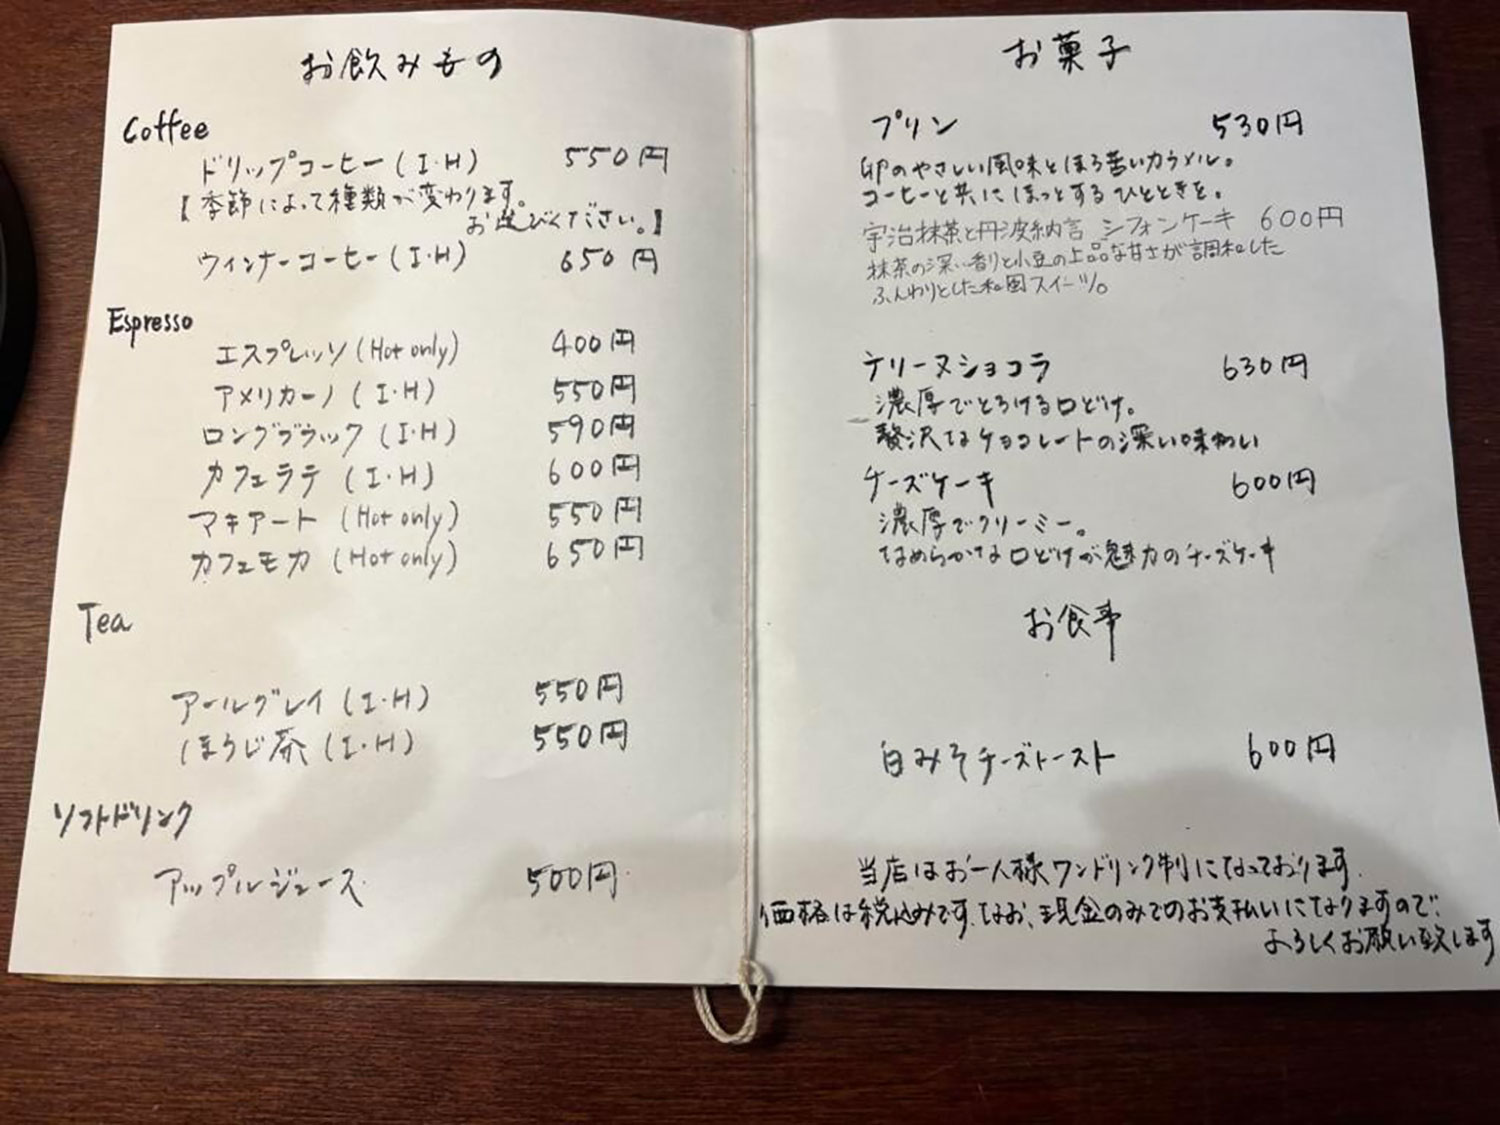 お飲みもの
Coffee
ドリップコーヒー(I・H) 550円
【季節によって種類が変わります。
お選びください。】
ウィンナーコーヒー(I・H) 650円
Espresso
エスプレッソ(Hot only) 400円
アメリカーノ(I・H) 550円
ロングブラック(I・H) 590円
カフェラテ(I・H) 600円
マキアート(Hot only) 550円
カフェモカ(Hot only) 650円
Tea
アールグレイ(I・H) 550円
ほうじ茶(I・H) 550円
ソフトドリンク
アップルジュース 500円
お菓子
プリン 530円
卵のやさしい風味とほろ苦いカラメル。
コーヒーと共にほっとするひとときを。
宇治抹茶と丹波納言 シフォンケーキ 600円
抹茶の深い香りと小豆の上品な甘さが調和した
ふんわりとした和風スイーツ。
テリーヌショコラ 630円
濃厚でとろける口どけ。
贅沢なチョコレートの深い味わい
チーズケーキ 600円
濃厚でクリーミー。
なめらかな口どけが魅力のチーズケーキ
お食事
白みそチーズトースト 600円
当店はお一人様ワンドリンク制になっております.
価格は税込みです.なお、現金のみでのお支払いになりますので、
よろしくお願い致します